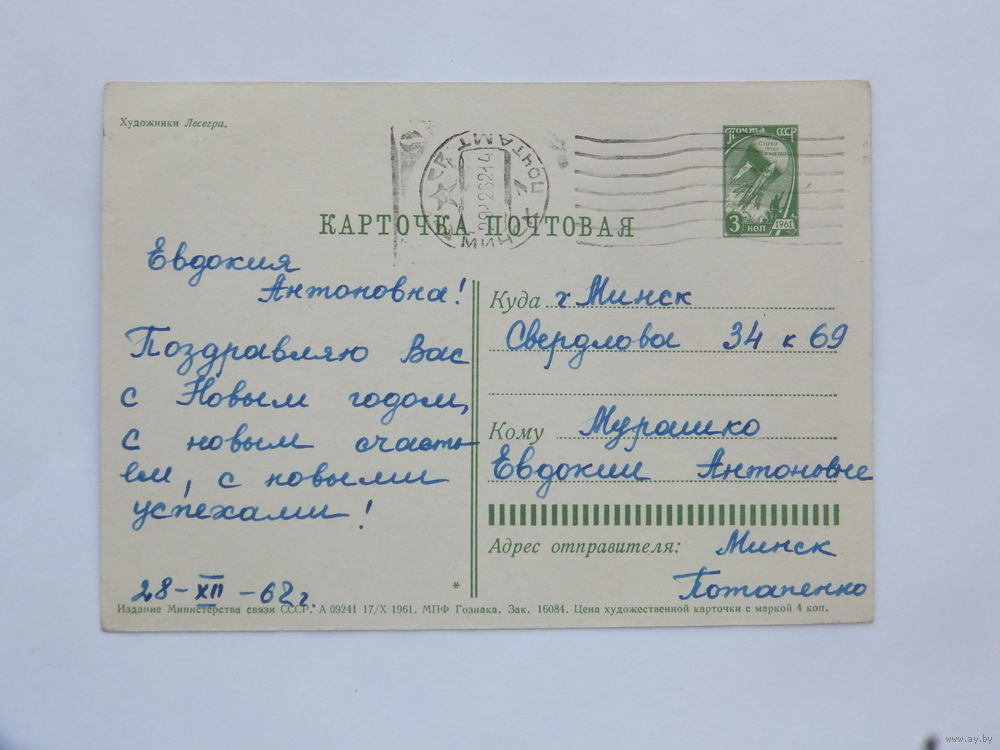 Художники Лесегри.
ПОЧТА СССР
3 КОП
1961
МИНСК ПОЧТАМТ
КАРТОЧКА ПОЧТОВАЯ
Евдокия
Антоновна!
Поздравляю Вас
с Новым годом,
с новым счасть
ем, с новыми
успехами!
28-XII-62 г.
Куда г. Минск
Свердлова 34 к 69
Кому Мурашко
Евдокии Антоновне
Адрес отправителя: Минск
Потапенко
*
Издание Министерства связи СССР. А 09241 17/X 1961. МПФ Гознака. Зак. 16084. Цена художественной карточки с маркой 4 коп.
www.ay.by